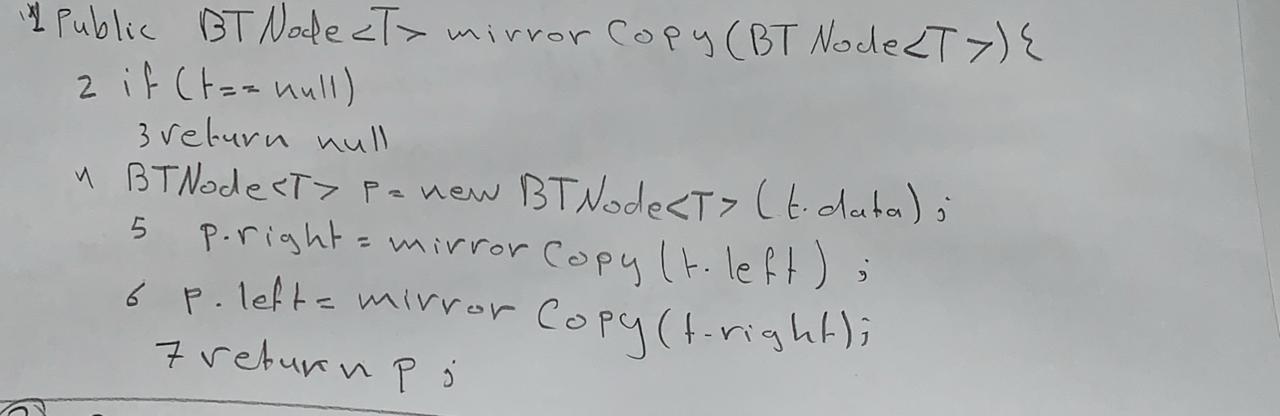 1 Public BTNode<T> mirror Copy (BT Node<T>){
2 if (t== null)
3 return null
4 BTNode<T> p= new BTNode<T> (t.data);
5 p.right = mirror Copy (t.left);
6 p.left= mirror Copy (t.right);
7 return p;